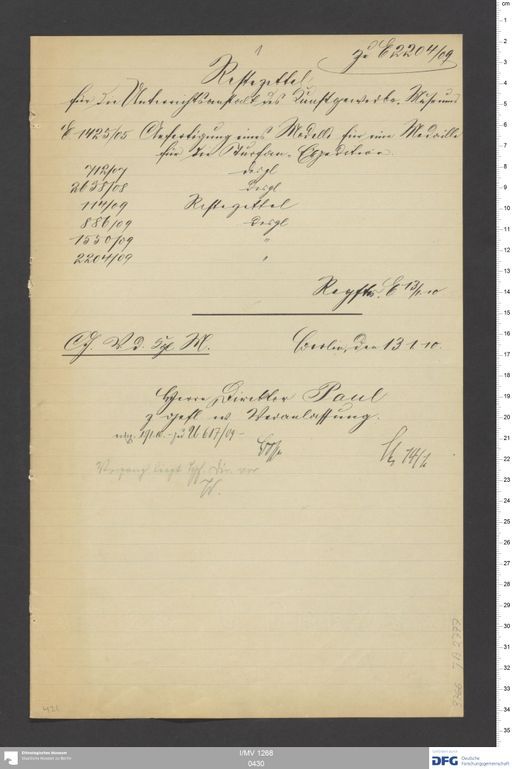 1
zu E 2204/09
Restezettel
für die Unterrichtsanstalt des Kunstgewerbe-Museums
E 1425/05 Anfertigung eines Modells für eine Medaille
für die Turfan-Expedition.
712/07 desgl
2638/08 desgl
114/09 Restezettel
886/09 desgl
1550/09 "
2204/09 "
Regstr. E 13/1 10
Berlin, den 13-1-10.
Herrn Direktor Paul
z. gefl. w. Veranlassung.
zu U 617/09
14/1
Vorgang liegt
421
I/MV 1268
0430
Ethnologisches Museum
Staatliche Museen zu Berlin
DFG Deutsche
Forschungsgemeinschaft